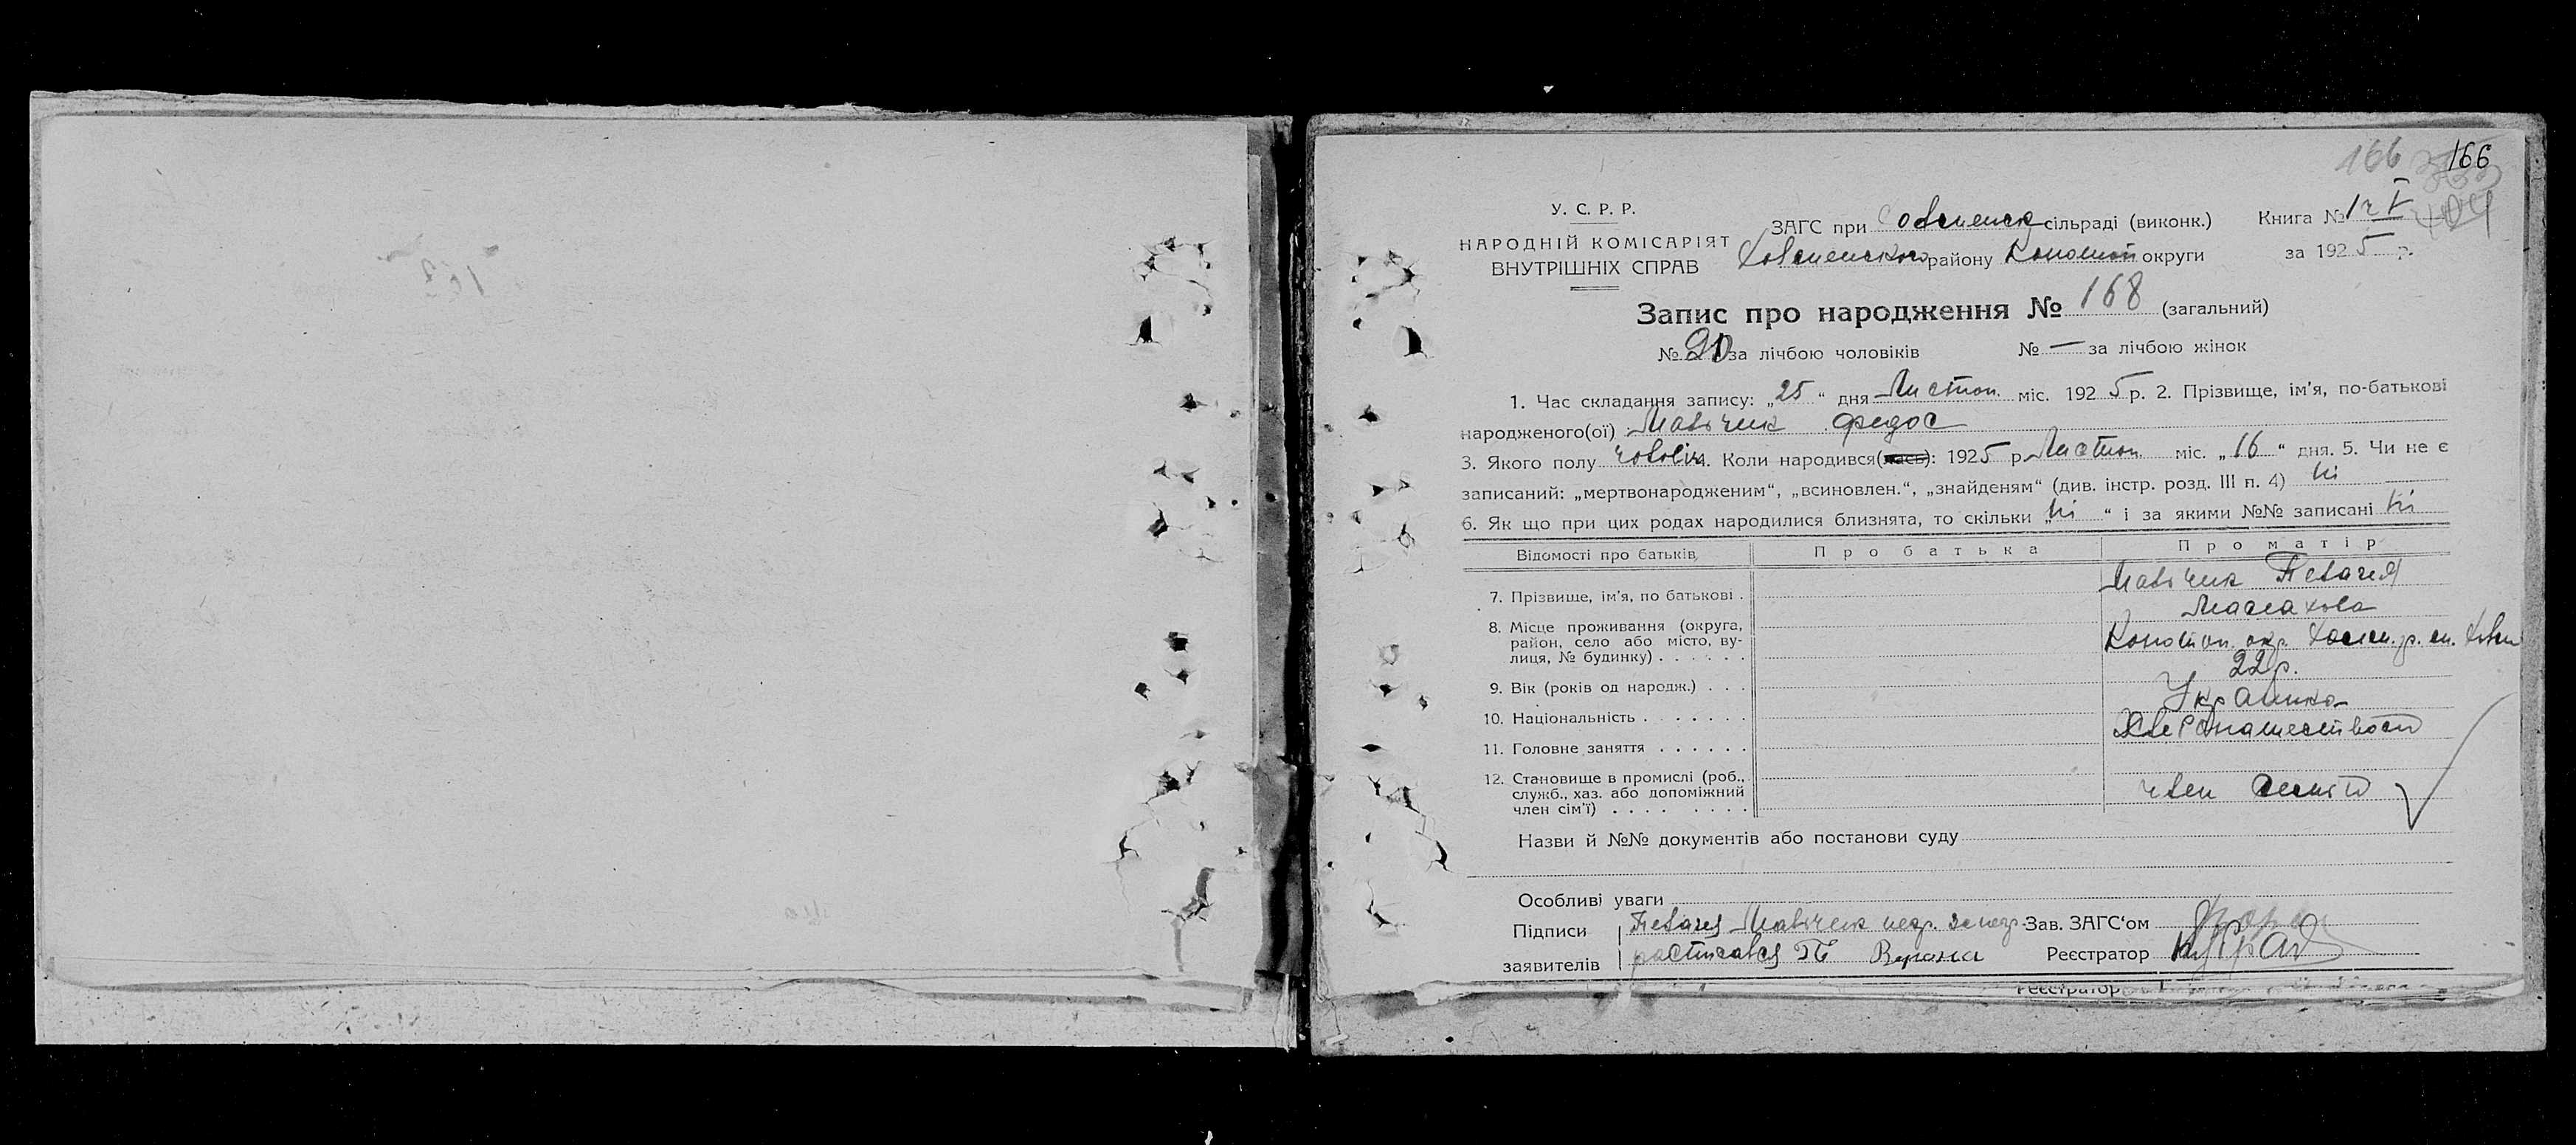 166 166
У. С. Р. Р.
НАРОДНІЙ КОМІСАРІЯТ
ВНУТРІШНІХ СПРАВ
ЗАГС при сільраді (виконк.) Книга №
району Конотоп округи за 1925 р.
Запис про народження № 168 (загальний)
№ за лічбою чоловіків № — за лічбою жінок
1. Час складання запису: „25“ дня Листоп. міс. 1925 р. 2. Прізвище, ім’я, по-батькові
народженого(ої) Федос
3. Якого полу чоловік 4. Коли народився(лась): 1925 р. Листоп. міс. „16“ дня. 5. Чи не є
записаний: „мертвонародженим“, „всиновлен.“, „знайденям“ (див. інстр. розд. III п. 4) Ні
6. Як що при цих родах народилися близнята, то скільки „Ні“ і за якими №№ записані Ні
Відомості про батьків Про батька Про матір
7. Прізвище, ім’я, по батькові . Пелагея
8. Місце проживання (округа,
район, село або місто, ву-
лиця, № будинку) . . . . . . Конотоп. окр.
9. Вік (років од народж.) . . . 22 р.
10. Національність . . . . . . . Українка
11. Головне заняття . . . . . .
12. Становище в промислі (роб.,
служб., хаз. або допоміжний
член сім’ї) . . . . . . . . . член семьї
Назви й №№ документів або постанови суду
Особливі уваги
Підписи Пелагея Зав. ЗАГС‘ом
заявителів Реєстратор
Реєстратор